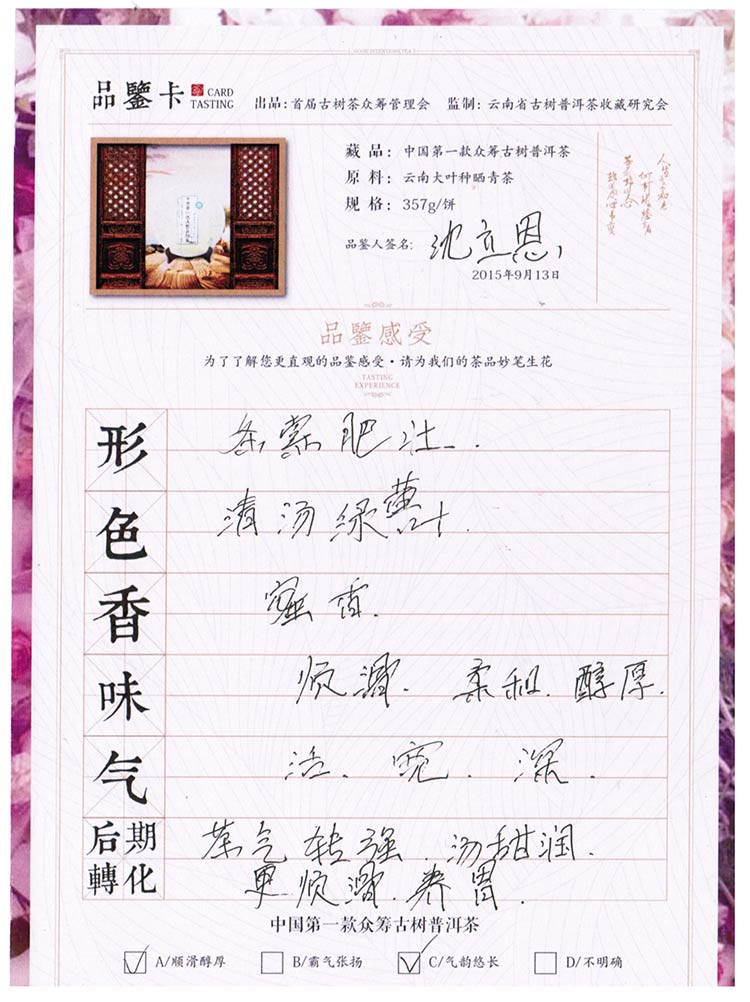 GOOD INTENTIONS TEA
品鑒卡 CARD TASTING
出品:首届古树茶众筹管理会 监制:云南省古树普洱茶收藏研究会
藏品:中国第一款众筹古树普洱茶
原料:云南大叶种晒青茶
规格:357g/饼
品鉴人签名:沈立恩
2015年9月13日
品鑒感受
为了了解您更直观的品鉴感受·请为我们的茶品妙笔生花
TASTING
EXPERIENCE
形 条索肥壮.
色 清汤绿黄叶.
香 蜜香.
味 顺滑. 柔和. 醇厚.
气 活. 宽. 深.
后期轉化 茶气转强.汤甜润.
更顺滑.养胃.
中国第一款众筹古树普洱茶
A/顺滑醇厚 B/霸气张扬 C/气韵悠长 D/不明确